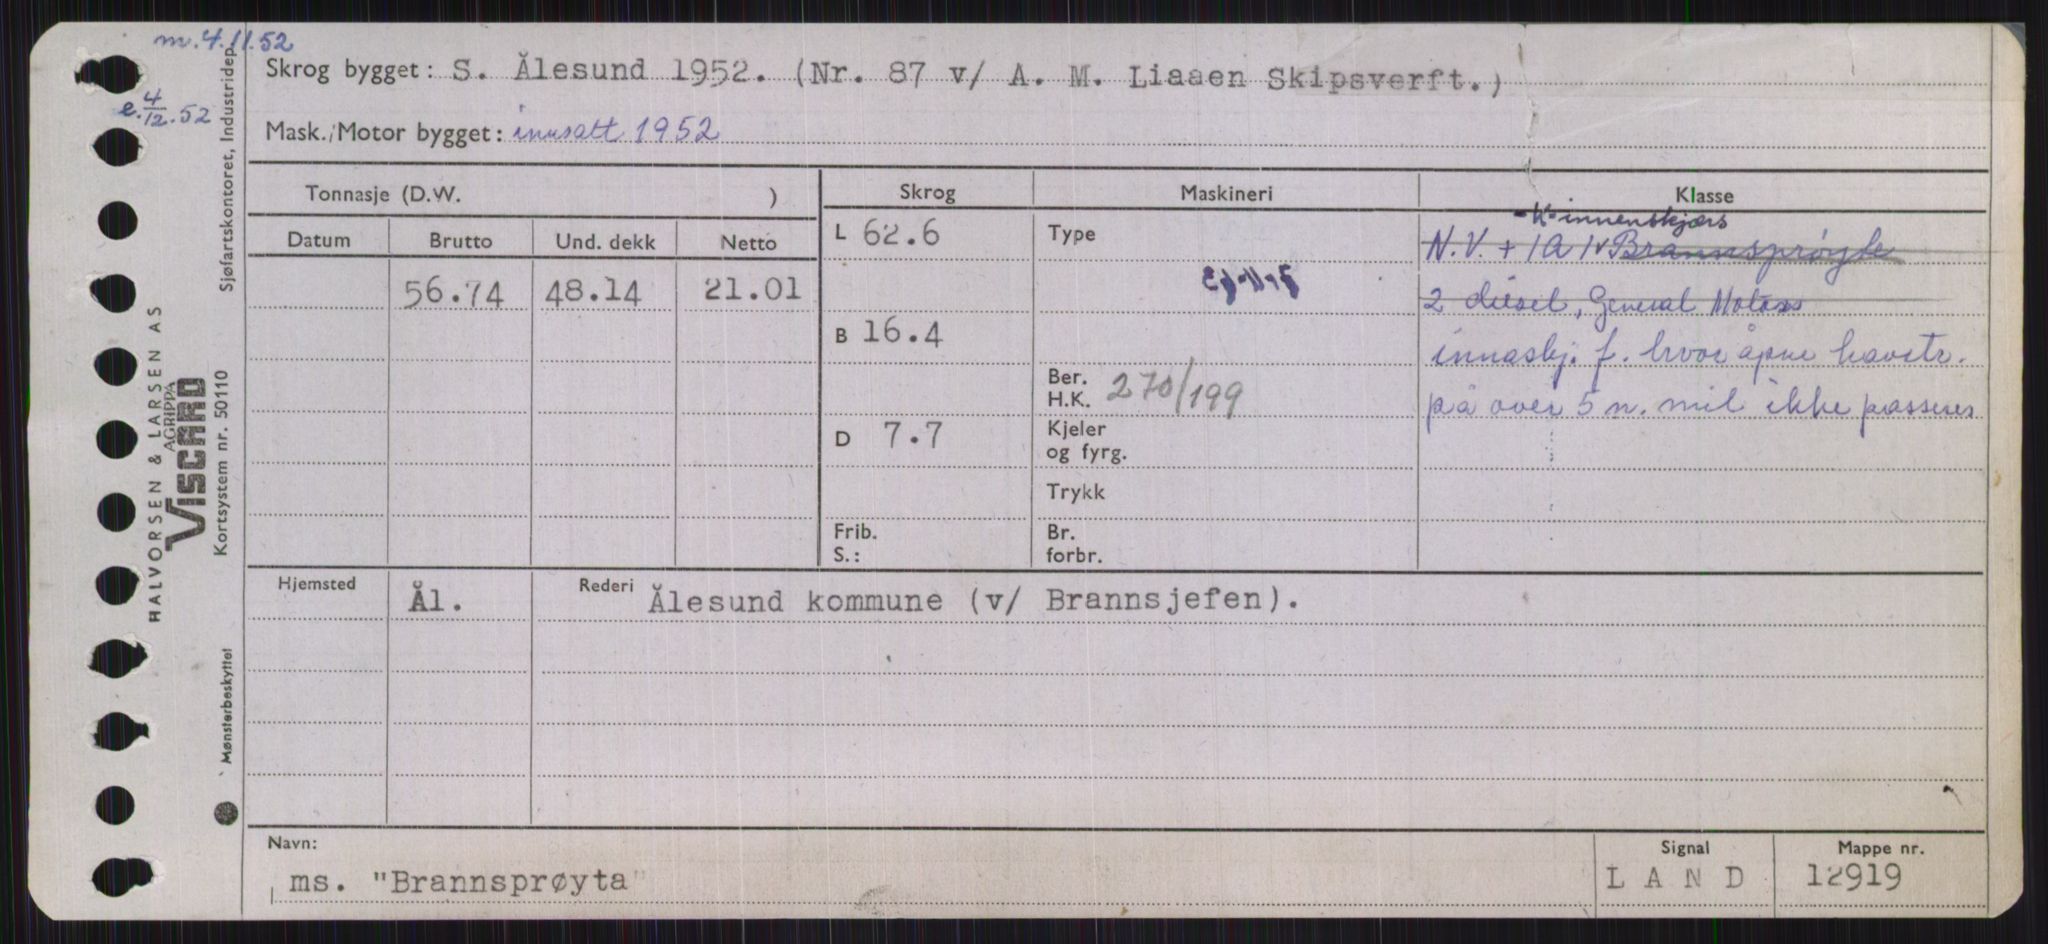 m. 4.11.52
e. 4/12.52
Skrog bygget: S. Ålesund 1952. (Nr. 87 v/ A. M. Liaaen Skipsverft.)
Mask./Motor bygget: innsatt 1952
Tonnasje (D.W. )
Skrog
Maskineri
Klasse
Datum
Brutto
Und. dekk
Netto
56.74
48.14
21.01
L 62.6
B 16.4
D 7.7
Frib.
S.:
Type
Ber.
H.K. 270/199
Kjeler
og fyrg.
Trykk
Br.
forbr.
-K- innenskjærs
N.V. + 1A1 Brannsprøyte
2 diesel, General Motors
innaskj. f. hvor åpne havstr.
på over 5 n. mil ikke passeres
Hjemsted
Ål.
Rederi
Ålesund kommune (v/ Brannsjefen).
Navn:
ms. "Brannsprøyta"
Signal
LAND
Mappe nr.
12919
HALVORSEN & LARSEN AS
AGRIPPA
VISCARD
Kortsystem nr. 50110
Sjøfartskontoret, Industridep.
Mønsterbeskyttet